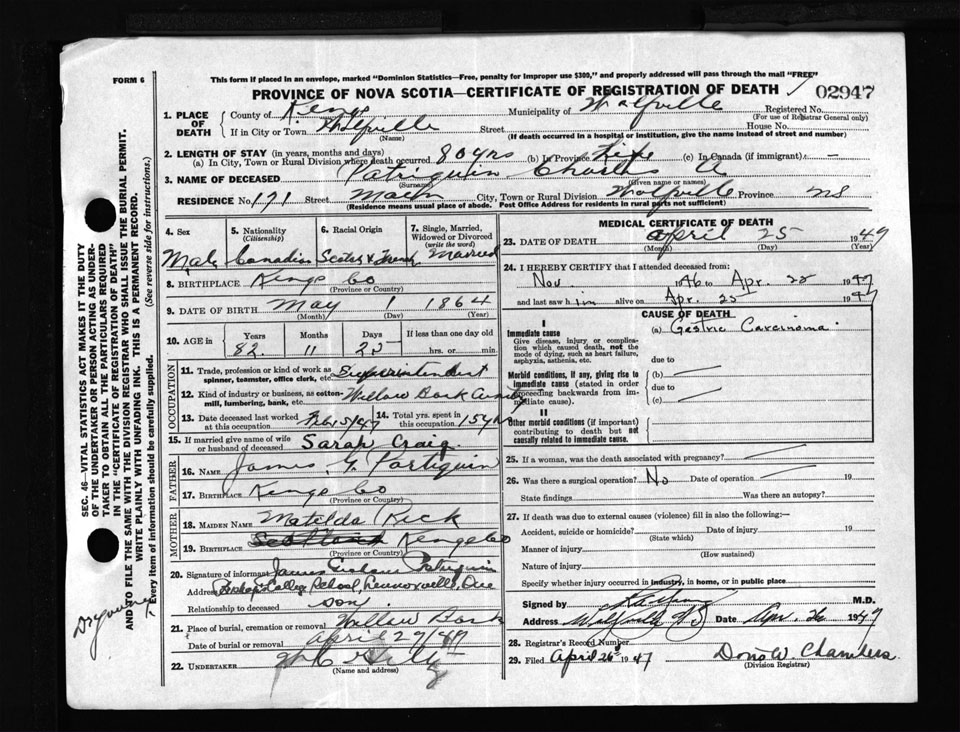 FORM 6
This form if placed in an envelope, marked "Dominion Statistics—Free, penalty for improper use $300," and properly addressed will pass through the mail "FREE"
PROVINCE OF NOVA SCOTIA—CERTIFICATE OF REGISTRATION OF DEATH
02947
1. PLACE OF DEATH
County of Kings Municipality of Wolfville Registered No.
(For use of Registrar General only)
If in City or Town Wolfville Street House No.
(Name) (If death occurred in a hospital or institution, give the name instead of street and number)
2. LENGTH OF STAY (in years, months and days)
(a) In City, Town or Rural Division where death occurred 80 yrs (b) In Province Life (c) In Canada (if immigrant) —
3. NAME OF DECEASED Patriquin Charles A
(Surname) (Given name or names)
RESIDENCE No. 171 Street Main City, Town or Rural Division Wolfville Province NS
(Residence means usual place of abode. Post Office Address for residents in rural parts not sufficient)
4. Sex
Male
5. Nationality
(Citizenship)
Canadian
6. Racial Origin
Scotch & French
7. Single, Married, Widowed or Divorced
(write the word)
Married
8. BIRTHPLACE Kings Co
(Province or Country)
9. DATE OF BIRTH May 1 1864
(Month) (Day) (Year)
10. AGE in Years Months Days If less than one day old
82 11 25 hrs. or min.
OCCUPATION
11. Trade, profession or kind of work as spinner, teamster, office clerk, etc. Superintendent
12. Kind of industry or business, as cotton-mill, lumbering, bank, etc. Willow Bank
13. Date deceased last worked at this occupation Feb 15/47
14. Total yrs. spent in this occupation 15 yrs
15. If married give name of wife or husband of deceased Sarah Craig
FATHER
16. NAME James Patriquin
17. BIRTHPLACE Kings Co
(Province or Country)
MOTHER
18. MAIDEN NAME Matilda
19. BIRTHPLACE Scotland Kings Co
(Province or Country)
20. Signature of informant James Graham Patriquin
Address Bishops College School, Lennoxville, Que
Relationship to deceased son
21. Place of burial, cremation or removal Willow Bank
Date of burial or removal April 27/47
22. UNDERTAKER
(Name and address)
MEDICAL CERTIFICATE OF DEATH
23. DATE OF DEATH April 25 1947
(Month) (Day) (Year)
24. I HEREBY CERTIFY that I attended deceased from:
Nov. 1946 to Apr. 25 1947
and last saw him alive on Apr. 25 1947
CAUSE OF DEATH
I
Immediate cause (a) Gastric Carcinoma.
Give disease, injury or complication which caused death, not the mode of dying, such as heart failure, asphyxia, asthenia, etc.
due to
Morbid conditions, if any, giving rise to immediate cause (stated in order proceeding backwards from immediate cause).
(b)
due to
(c)
II
Other morbid conditions (if important) contributing to death but not causally related to immediate cause.
25. If a woman, was the death associated with pregnancy?
26. Was there a surgical operation? No Date of operation 19
State findings Was there an autopsy?
27. If death was due to external causes (violence) fill in also the following:—
Accident, suicide or homicide? Date of injury 19
(State which)
Manner of injury
(How sustained)
Nature of injury
Specify whether injury occurred in industry, in home, or in public place
Signed by M.D.
Address Wolfville N.S Date Apr. 26 1947
28. Registrar's Record Number
29. Filed April 26 1947 W. Chambers
(Division Registrar)
SEC. 46—VITAL STATISTICS ACT MAKES IT THE DUTY
OF THE UNDERTAKER OR PERSON ACTING AS UNDER-
TAKER TO OBTAIN ALL THE PARTICULARS REQUIRED
IN THE "CERTIFICATE OF REGISTRATION OF DEATH"
AND TO FILE THE SAME WITH THE DIVISION REGISTRAR WHO SHALL ISSUE THE BURIAL PERMIT.
WRITE PLAINLY WITH UNFADING INK. THIS IS A PERMANENT RECORD.
Every item of information should be carefully supplied. (See reverse side for instructions.)